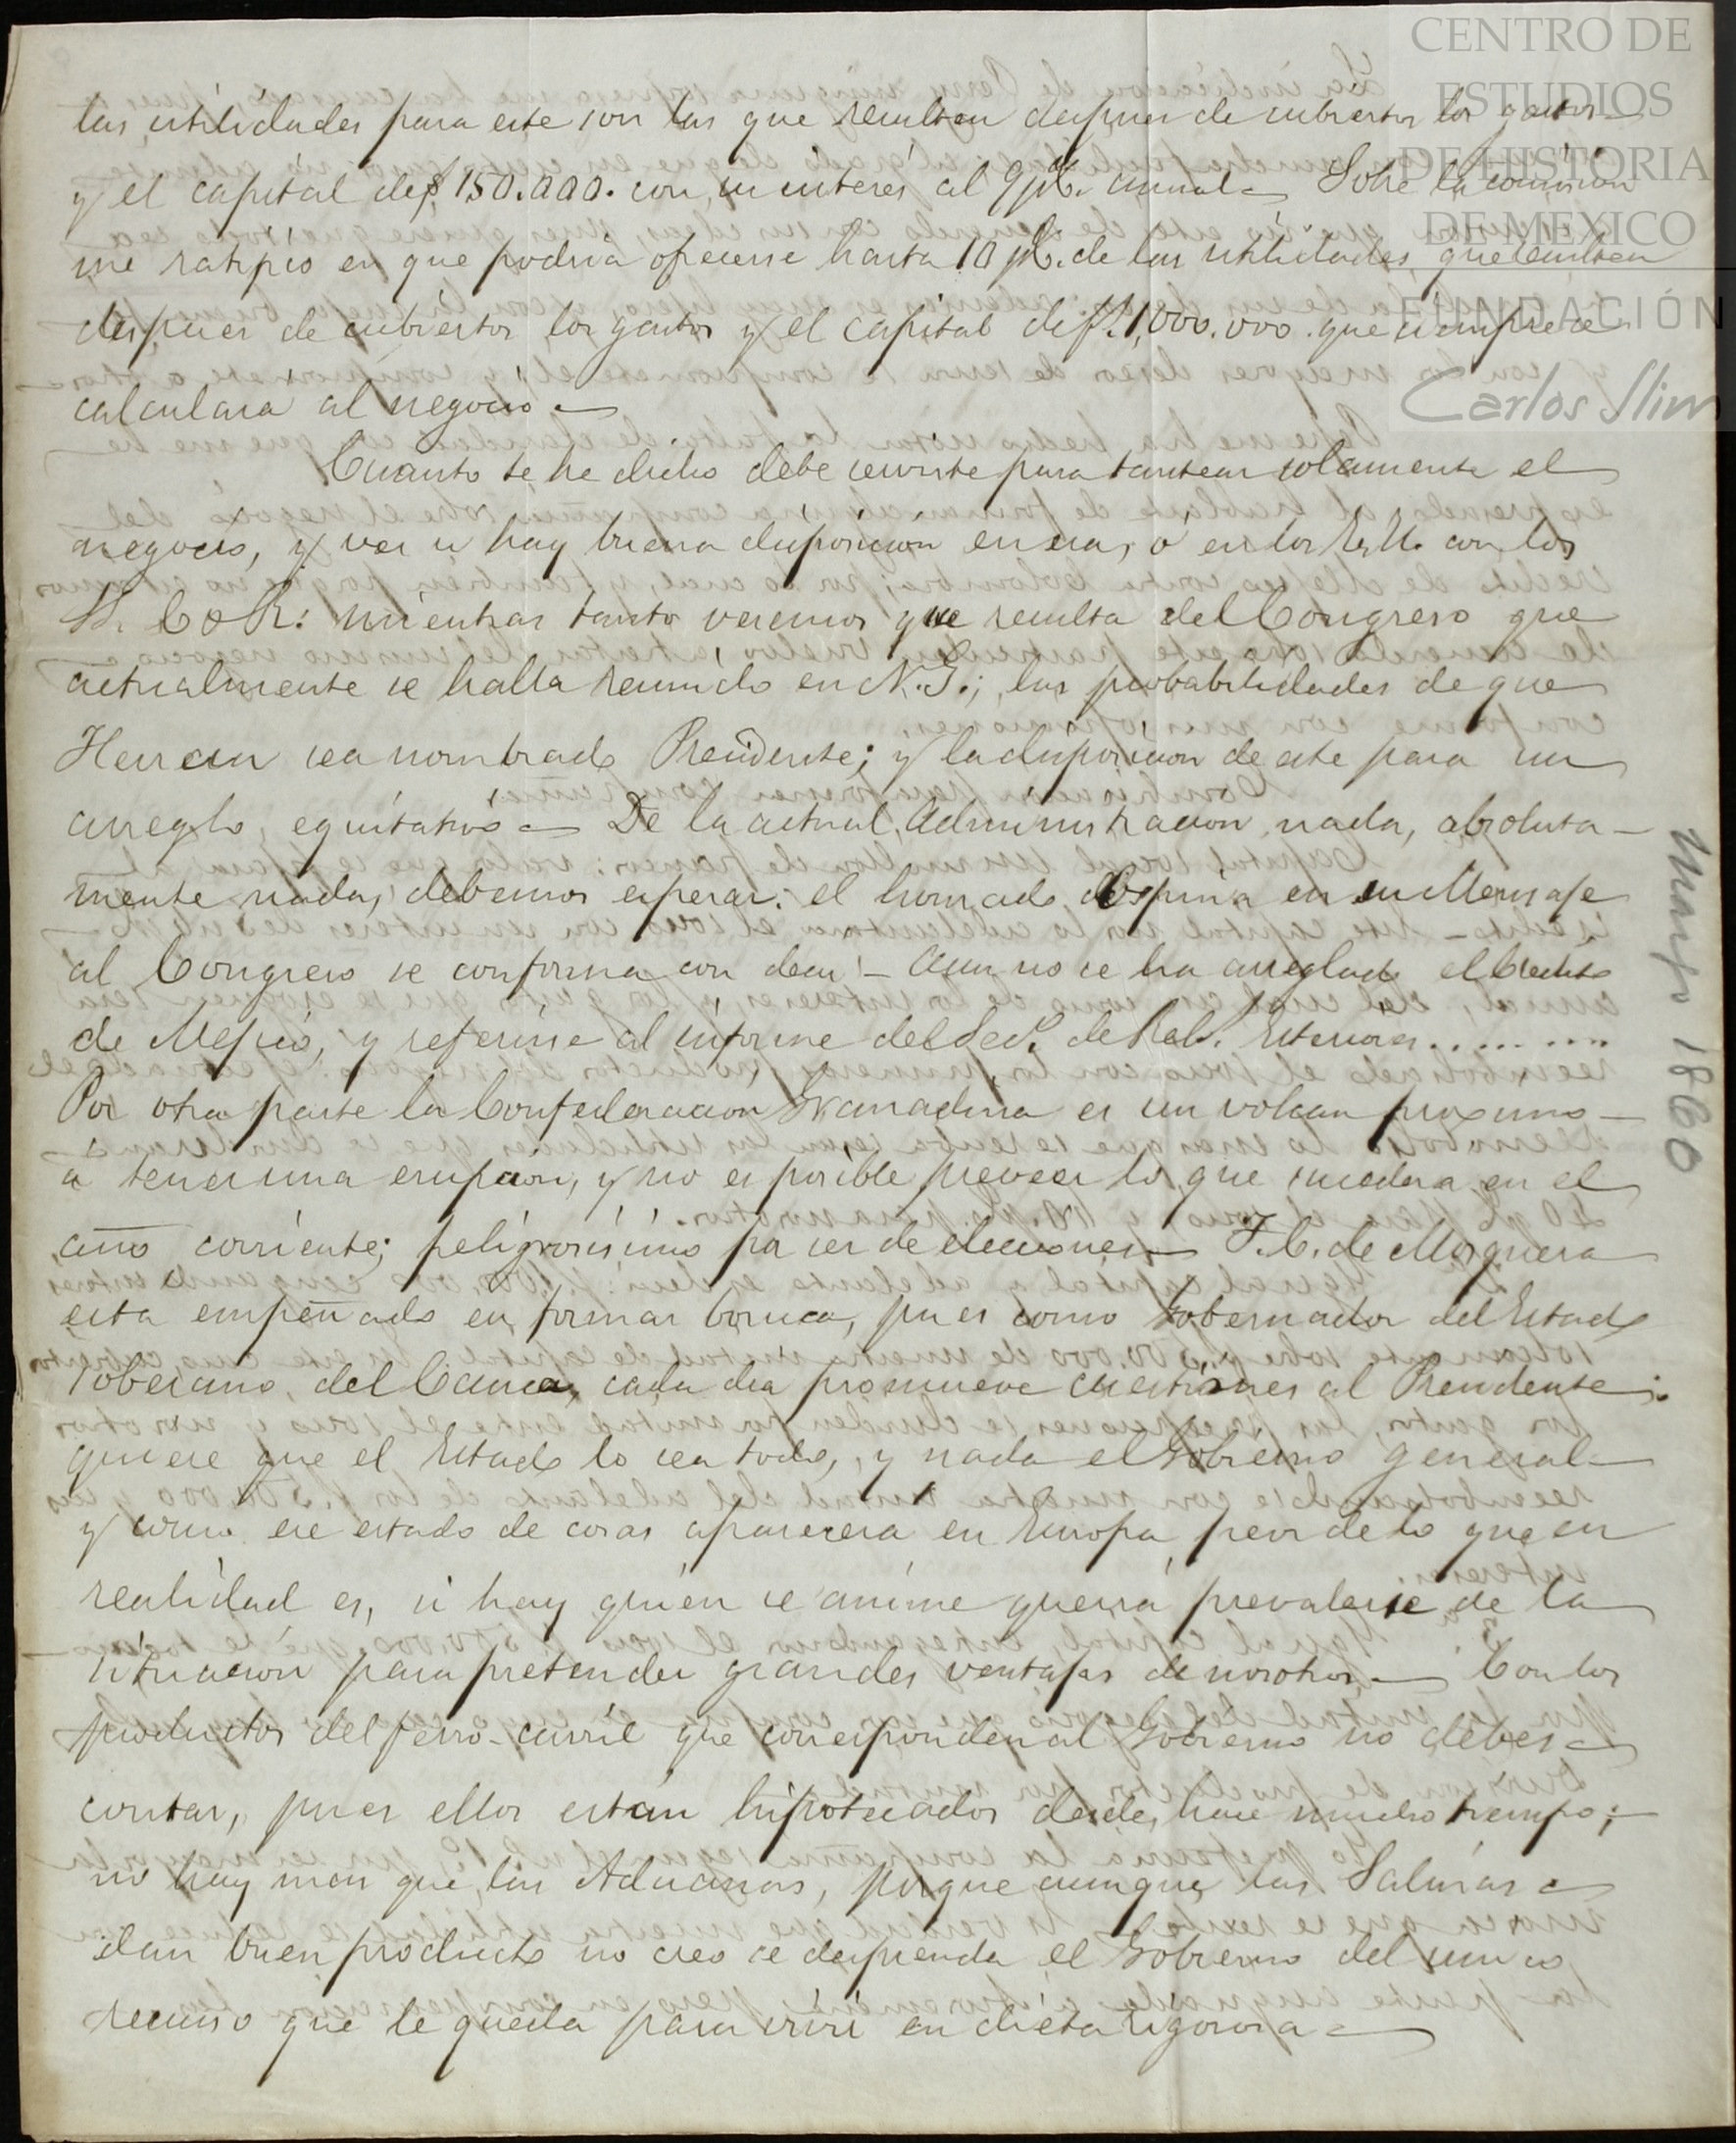 las utilidades para este son las que resulten despues de cubiertos los gastos
y el capital de $150.000. con su interes al 9 p%. anual — Sobre la comision
me ratifico en que podria ofrecerse hasta 10 p%. de las utilidades que resulten
despues de cubiertos los gastos y el capital de f. 1,000.000. que siempre se
calculara al negocio —
Cuanto te he dicho debe servirte para tantear solamente el
negocio, y ver si hay buena disposicion en esa, ó en los con los
mientras tanto veremos que resulta del Congreso que
actualmente se halla reunido en N. G.; las probabilidades de que
Herran sea nombrado Presidente; y la disposicion de este para un
arreglo equitativo — De la actual Administracion nada, absoluta-
mente nada, debemos esperar: el honrado Ospina en su Mensaje
al Congreso se conforma con decir — Aun no se ha arreglado el Credito
de Mejico, y referirse al informe del Sec.º de Rel.s Esteriores........
Por otra parte la Confederacion Granadina es un volcan proximo
a tener una erupcion, y no es posible preveer lo que sucedera en el
año corriente; peligrosisimo por ser de elecciones — T. C. de Mosquera
esta empeñado en formar boruca, pues como Gobernador del Estado
soberano del Cauca, cada dia promueve cuestiones al Presidente;
quiere que el Estado lo sea todo, y nada el Gobierno general —
y como ese estado de cosas aparecera en Europa peor de lo que en
realidad es, si hay quien se anime querrá prevalerse de la
situacion para pretender grandes ventajas de nosotros — Con los
productos del ferro-carril que corresponden al Gobierno no debes
contar, pues ellos estan hipotecados desde hace mucho tiempo;
no hay mas que las Aduanas, porque aunque las Salinas
dan buen producto no creo se desprenda el Gobierno del unico
recurso que le queda para vivir en dieta rigorosa —
Marzo 1860
CENTRO DE
ESTUDIOS
DE HISTORIA
DE MEXICO
FUNDACIÓN
Carlos Slim